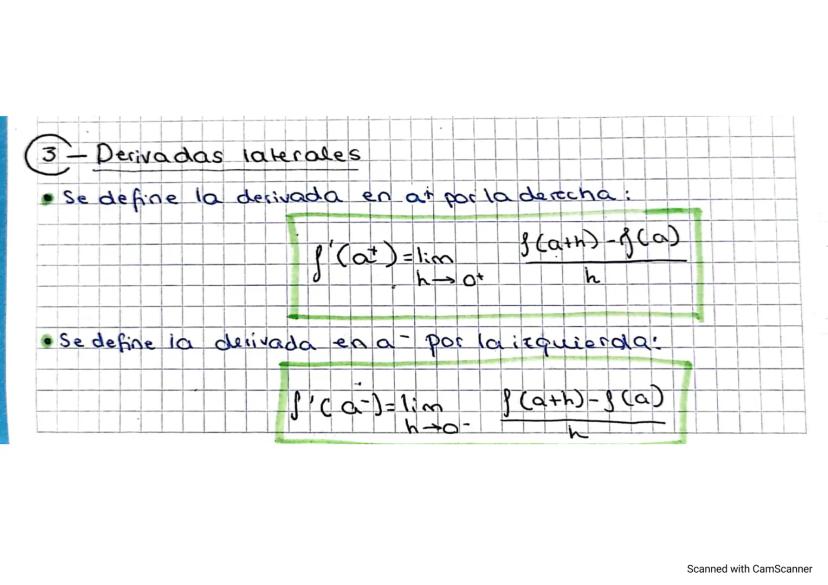 3 - Derivadas laterales
• Se define la derivada en a+ por la derecha:
f'(a+) = lim h→0+ f(a+h) - f(a) / h
• Se define la derivada en a- por la izquierda:
f'(a-) = lim h→0- f(a+h) - f(a) / h
Scanned with CamScanner